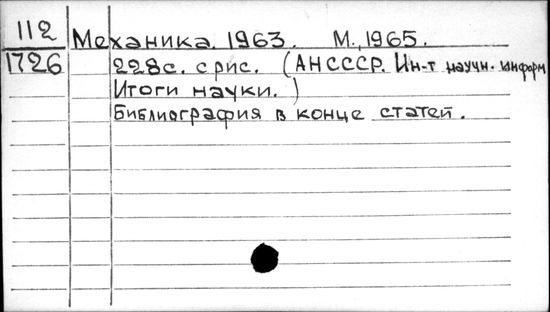 112
1726
Механика. 1963. М., 1965.
228с. с рис. (АН СССР. Ин-т научн. информ
Итоги науки.)
Библиография в конце статей.